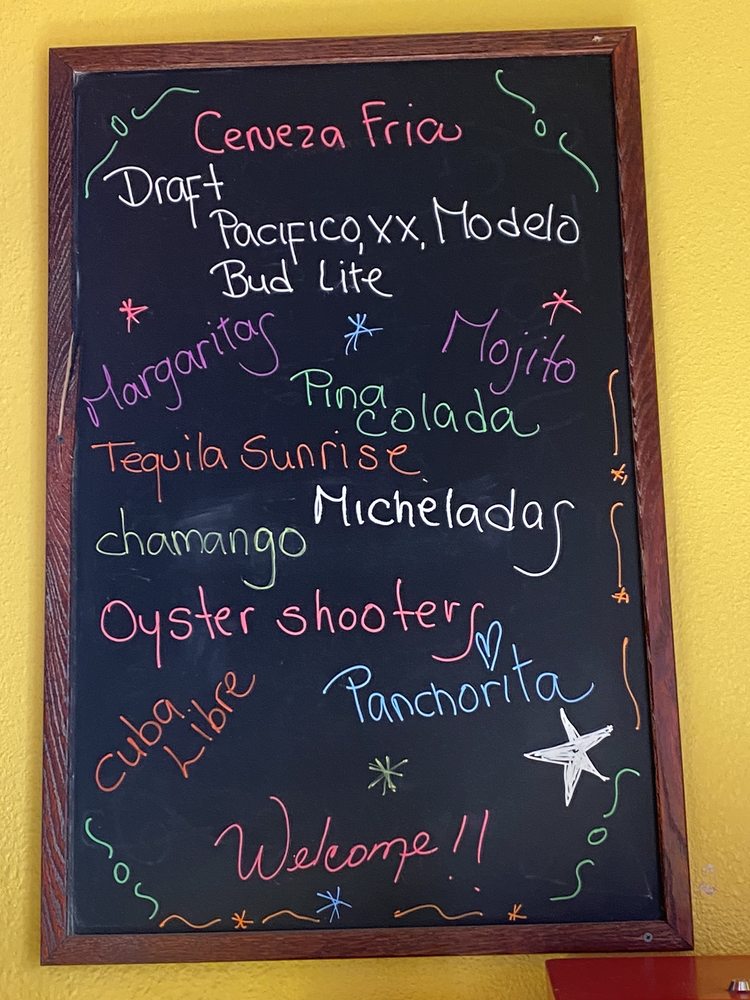 Cerveza Fria
Draft
Pacifico, XX, Modelo
Bud Lite
Margaritas
Mojito
Pina
colada
Tequila Sunrise
Micheladas
chamango
Oyster shooters
Panchorita
Cuba
Libre
Welcome!!